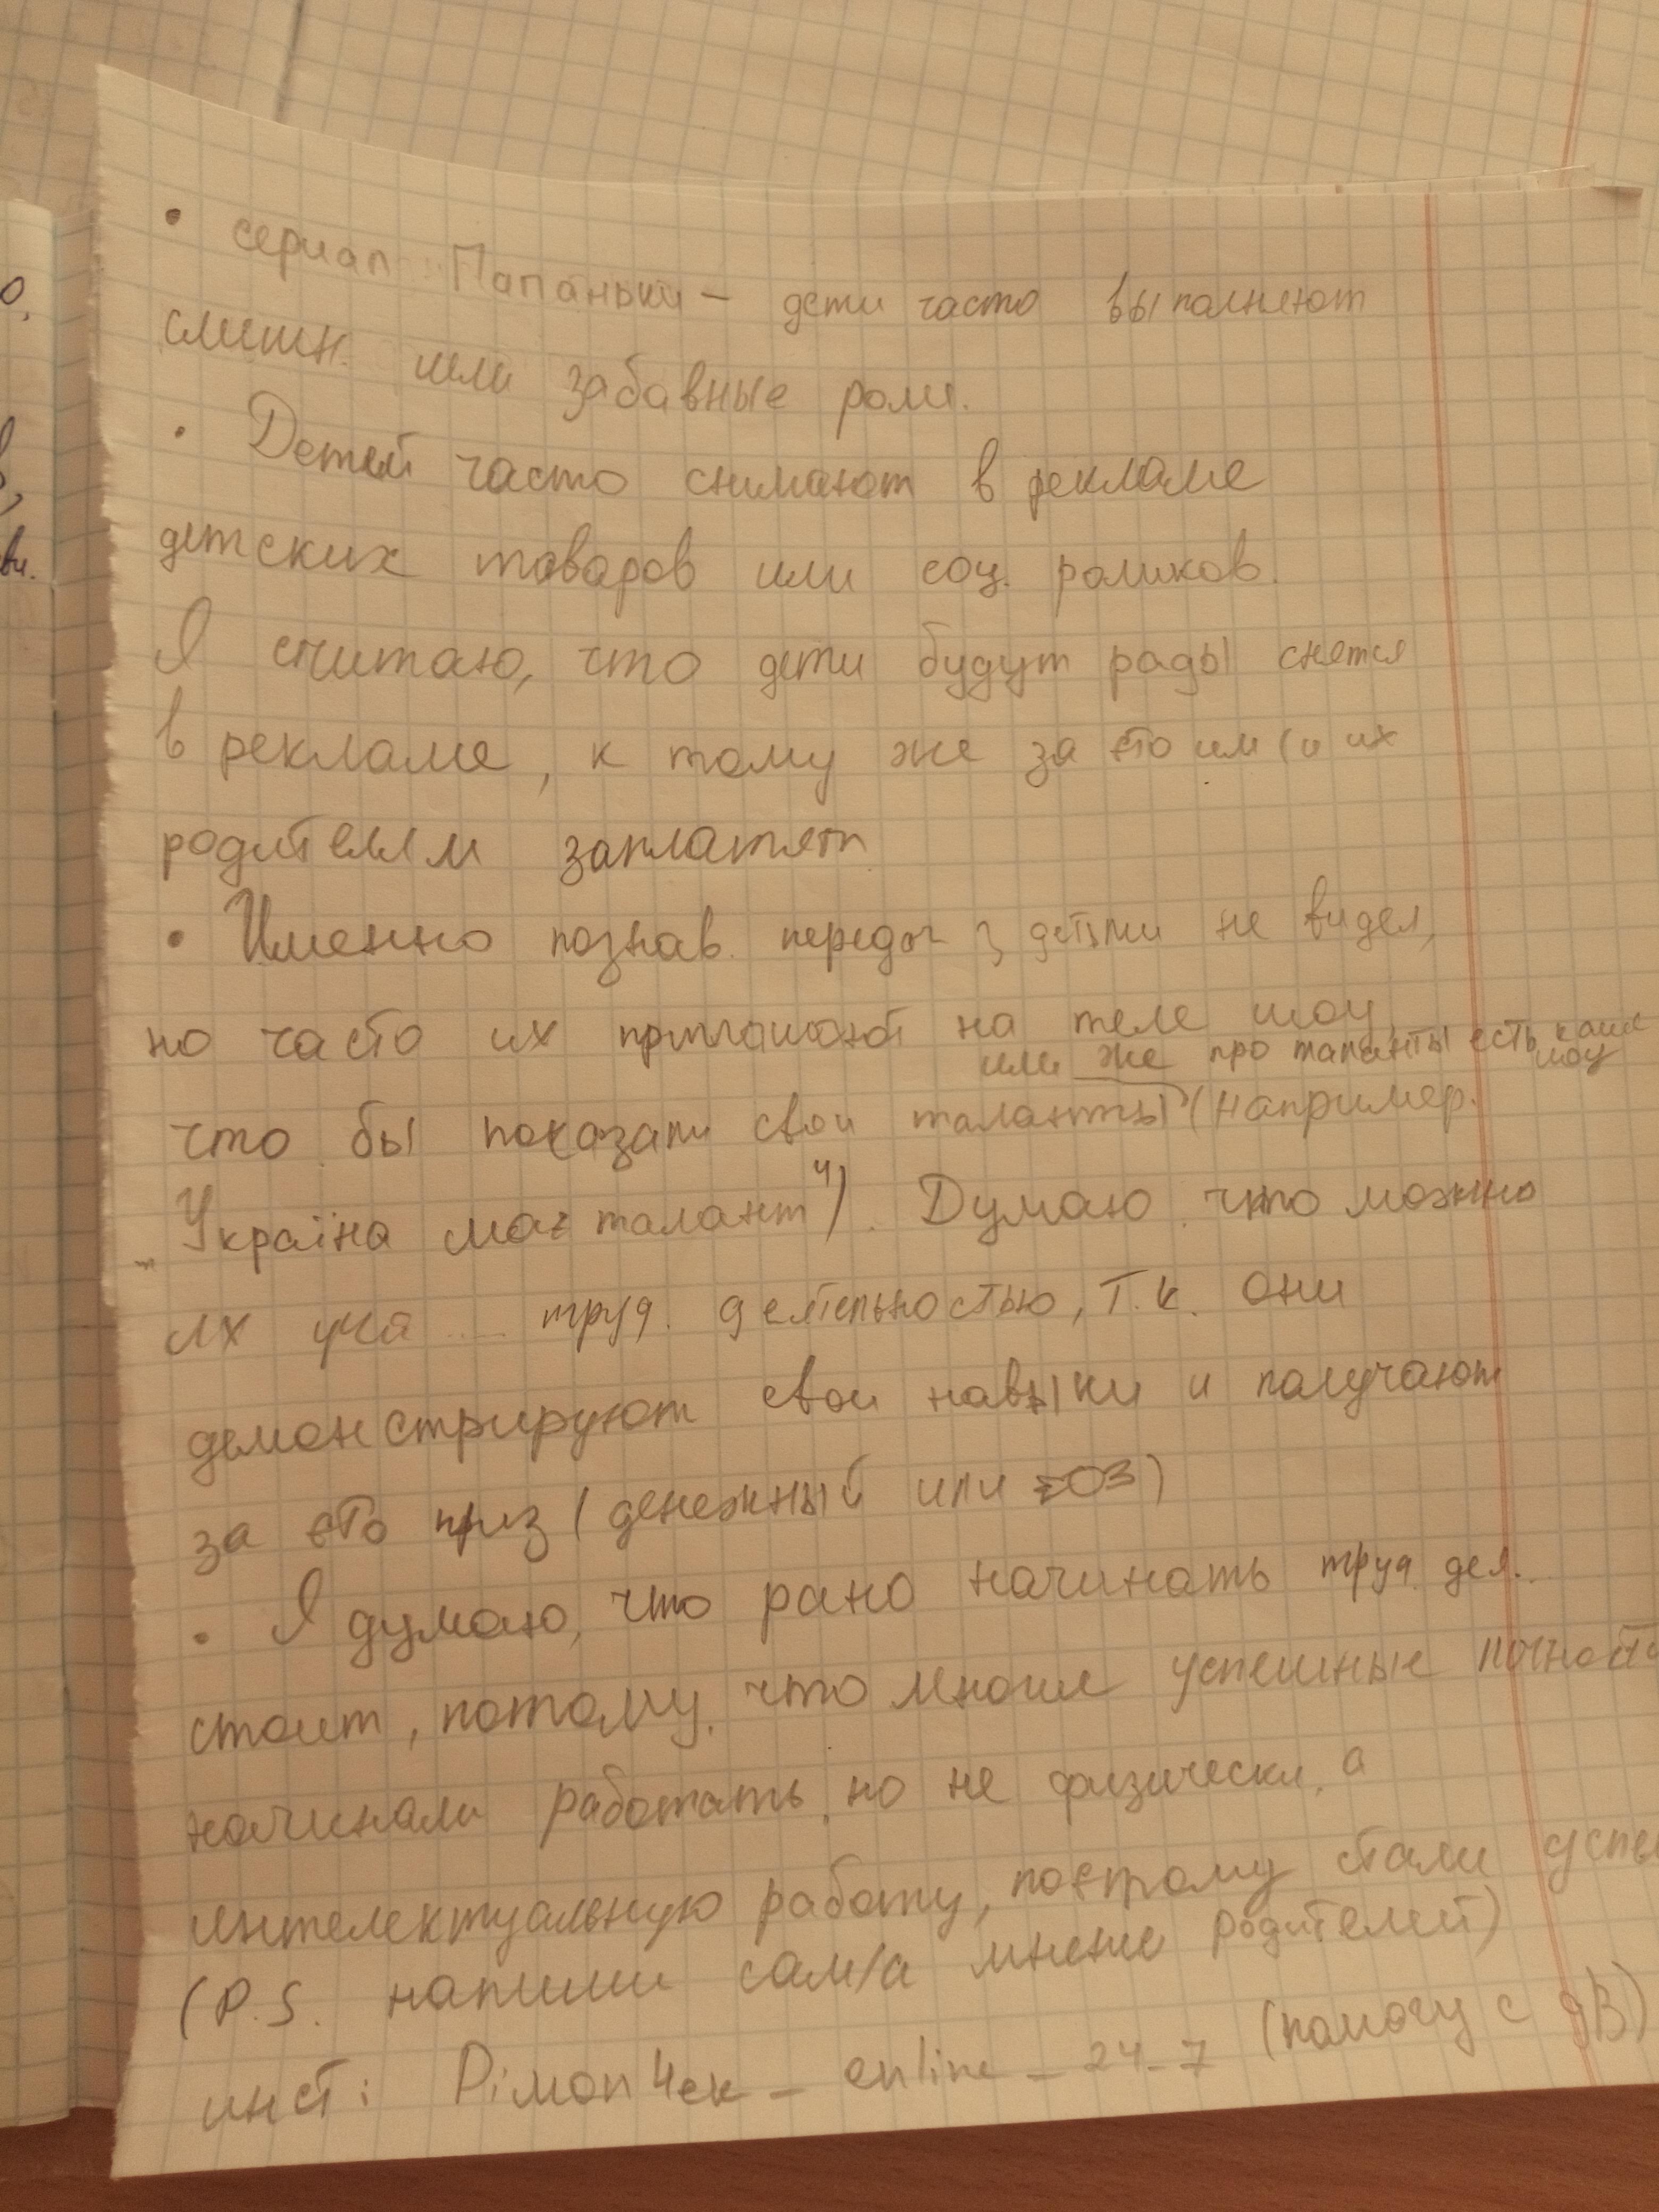 • сериал : Папаньки – дети часто выполняют
смешн. или забавные роли.
• Детей часто снимают в рекламе
детских товаров или соц. роликов.
Я считаю, что дети будут рады снятся
в рекламе, к тому же за єто им (и их
родителям заплатят
• Именно познав. передач з детьми не видел,
но часто их приглашают на теле шоу
или же про таланты есть каше
шоу
что бы показали свои таланты (например.
„Україна має талант"). Думаю что можно
их уча .... труд. деятельностью, т.к. они
демонстрируют свои навыки и получают
за єто приз (денежный или )
• Я думаю, что рано начинать труд. дея..
стоит, потому, что многие успешные личности
начинали работать, но не физически, а
интелектуальную работу, поєтому стали успе
(P.S. напиши сам/а мнение родителей)
инст: Рімоп4ек – online – 24–7 (помогу с дз)